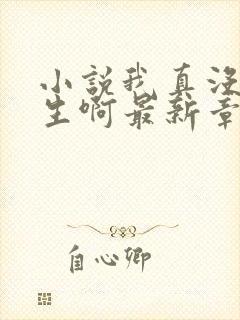 小説我真没
生啊最新章
自心卿